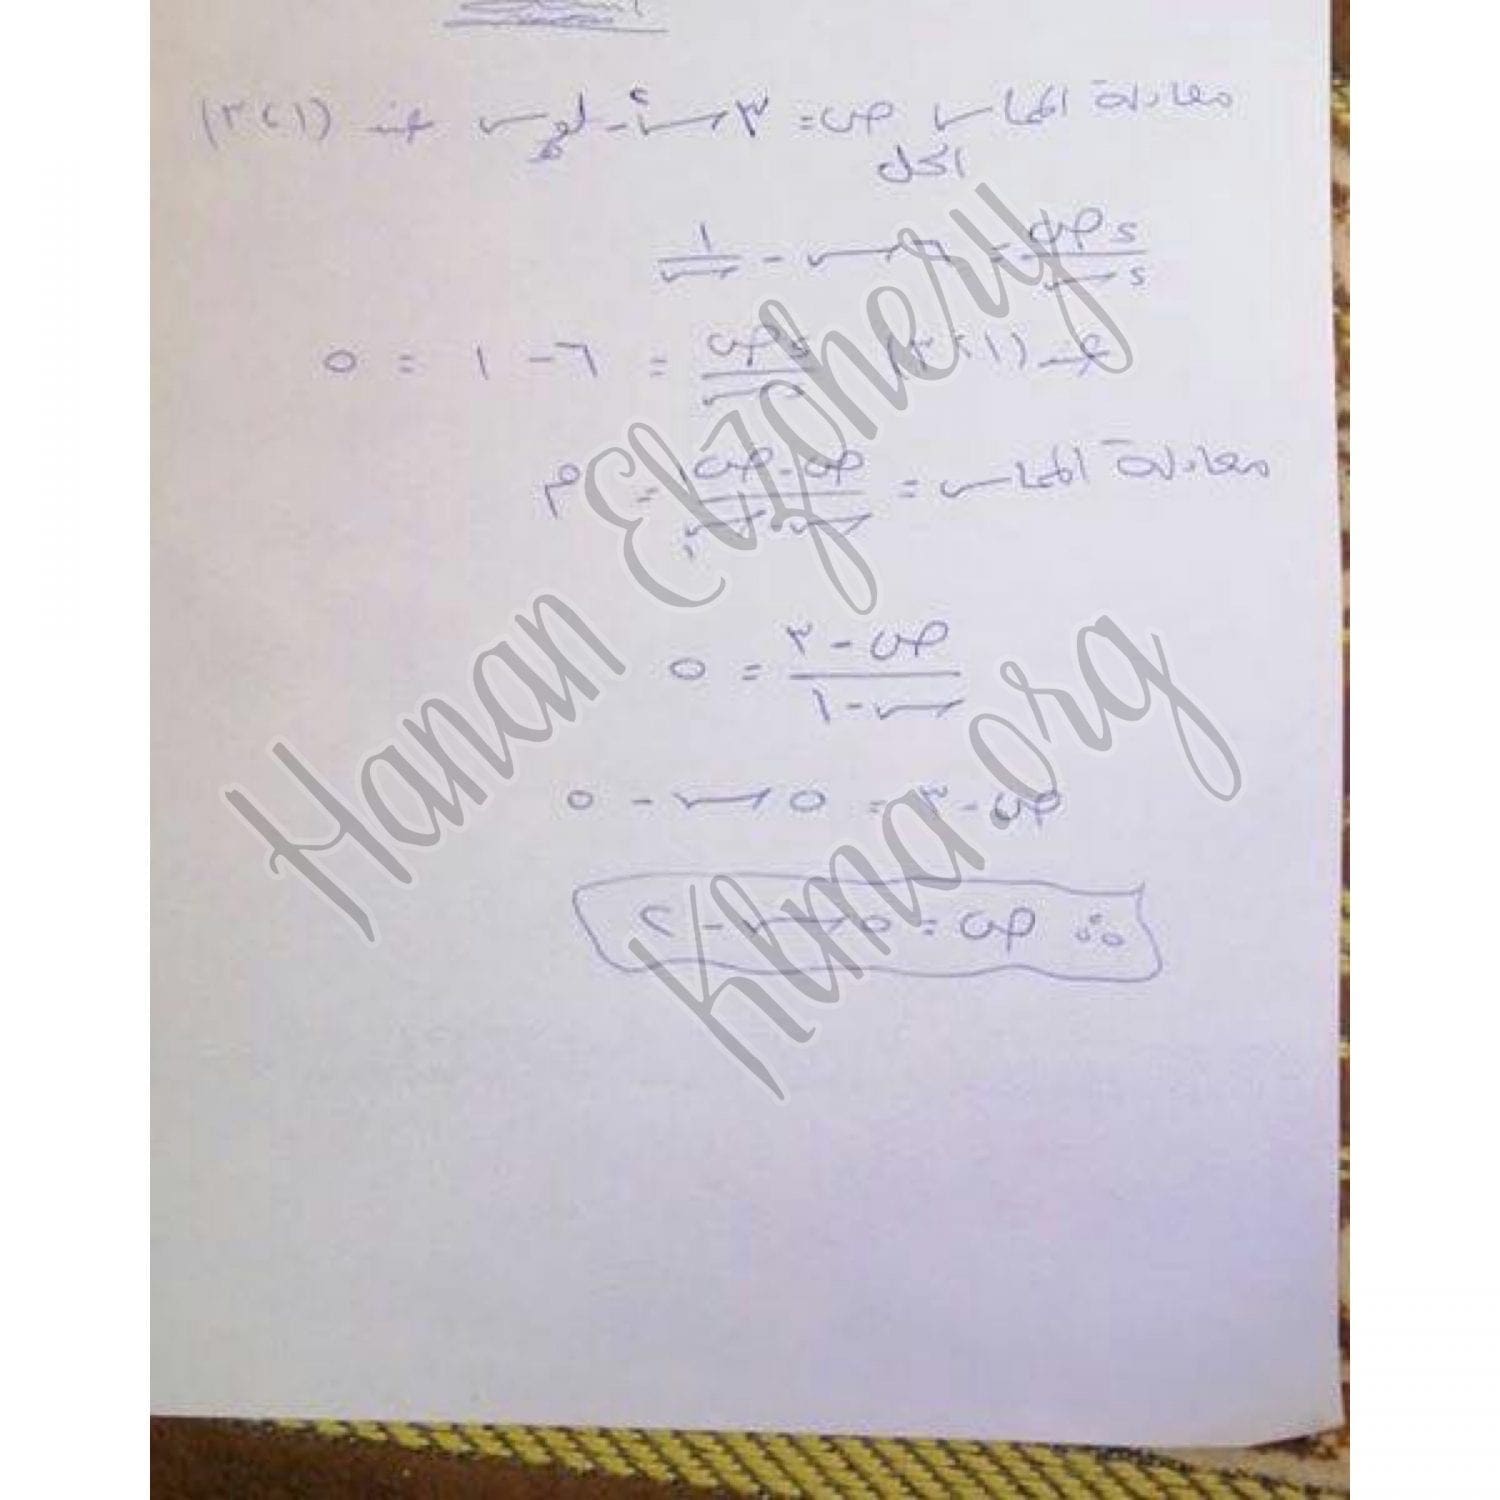 معادلة المماس ص = ٣س٢ - لوهس عند (٣،١)
الحل
دص/دس = ٦س - ١/س
عند (٣،١) دص/دس = ٦ - ١ = ٥
معادلة المماس = ص - ص١/س - س١ = م
ص - ٣/س - ١ = ٥
ص - ٣ = ٥س - ٥
∴ ص = ٥س - ٢
Hanan Elzghery
Klma.org